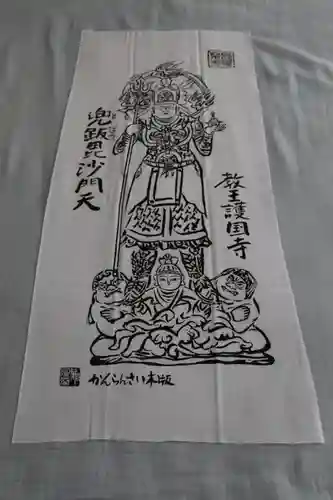 兜跋毘沙門天
教王護国寺
かんらんさい木版